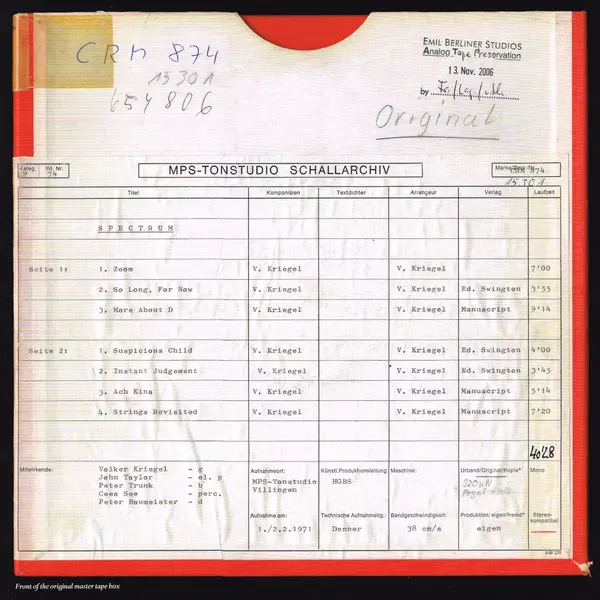 CRM 874
15301
654806
EMIL BERLINER STUDIOS
Analog Tape Preservation
13. Nov. 2006
by
Original
Kateg. lfd. Nr.
P 74
MPS-TONSTUDIO SCHALLARCHIV
CRM 874
15.301
Titel Komponisten Textdichter Arrangeur Verlag Laufzeit
SPECTRUM
Seite 1: 1. Zoom V. Kriegel V. Kriegel 7'00
2. So Long, For Now V. Kriegel V. Kriegel Ed. Swington 3'55
3. More About D V. Kriegel V. Kriegel Manuscript 9'14
Seite 2: 1. Suspicious Child V. Kriegel V. Kriegel Ed. Swington 4'00
2. Instant Judgement V. Kriegel V. Kriegel Ed. Swington 3'45
3. Ach Kina V. Kriegel V. Kriegel Manuscript 5'14
4. Strings Revisited V. Kriegel V. Kriegel Manuscript 7'20
40'28
Mitwirkende: Volker Kriegel - g
John Taylor - el. p
Peter Trunk - b
Cees See - perc.
Peter Baumeister - d
Aufnahmeort: Künstl. Produktionsleitung: Maschine: Urband/Original/Kopie* Mono
MPS-Tonstudio HGBS 320 nW
Villingen
Aufnahme am: Technische Aufnahmeltg.: Bandgeschwindigkeit: Produktion: eigen/fremd* Stereo-
kompatibel
1./2.2.1971 Donner 38 cm/s eigen
Front of the original master tape box